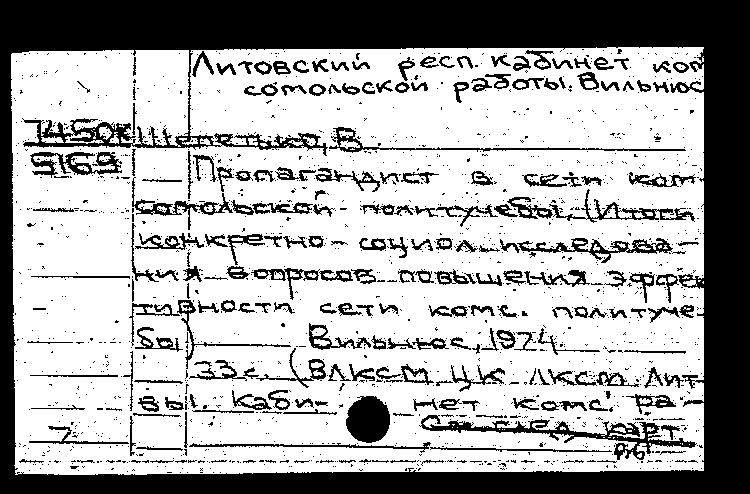 Литовский респ. кабинет ком
сомольской работы. Вильнюс
7450к Шепетько, В.
5169
Пропагандист в сети ком-
сомольской политучебы. (Итоги
конкретно-социол. исследова-
ния вопросов повышения эффек
тивности сети комс. политуче-
бы) Вильнюс, 1974.
33 с. (ВЛКСМ ЦК ЛКСМ Лит-
вы. Каби- нет комс. ра-
См. след. карт.
7